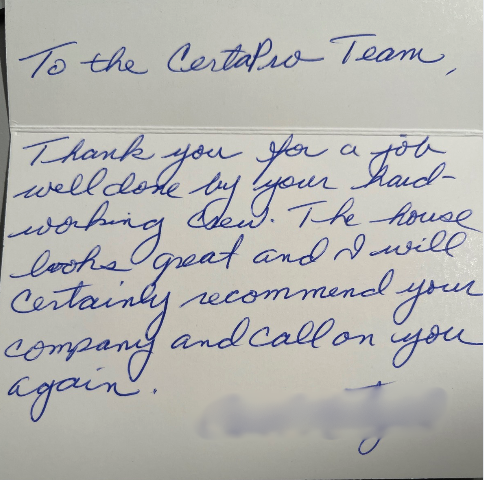 To the CertaPro Team,
Thank you for a job
well done by your hard-
working crew. The house
looks great and I will
certainly recommend your
company and call on you
again.